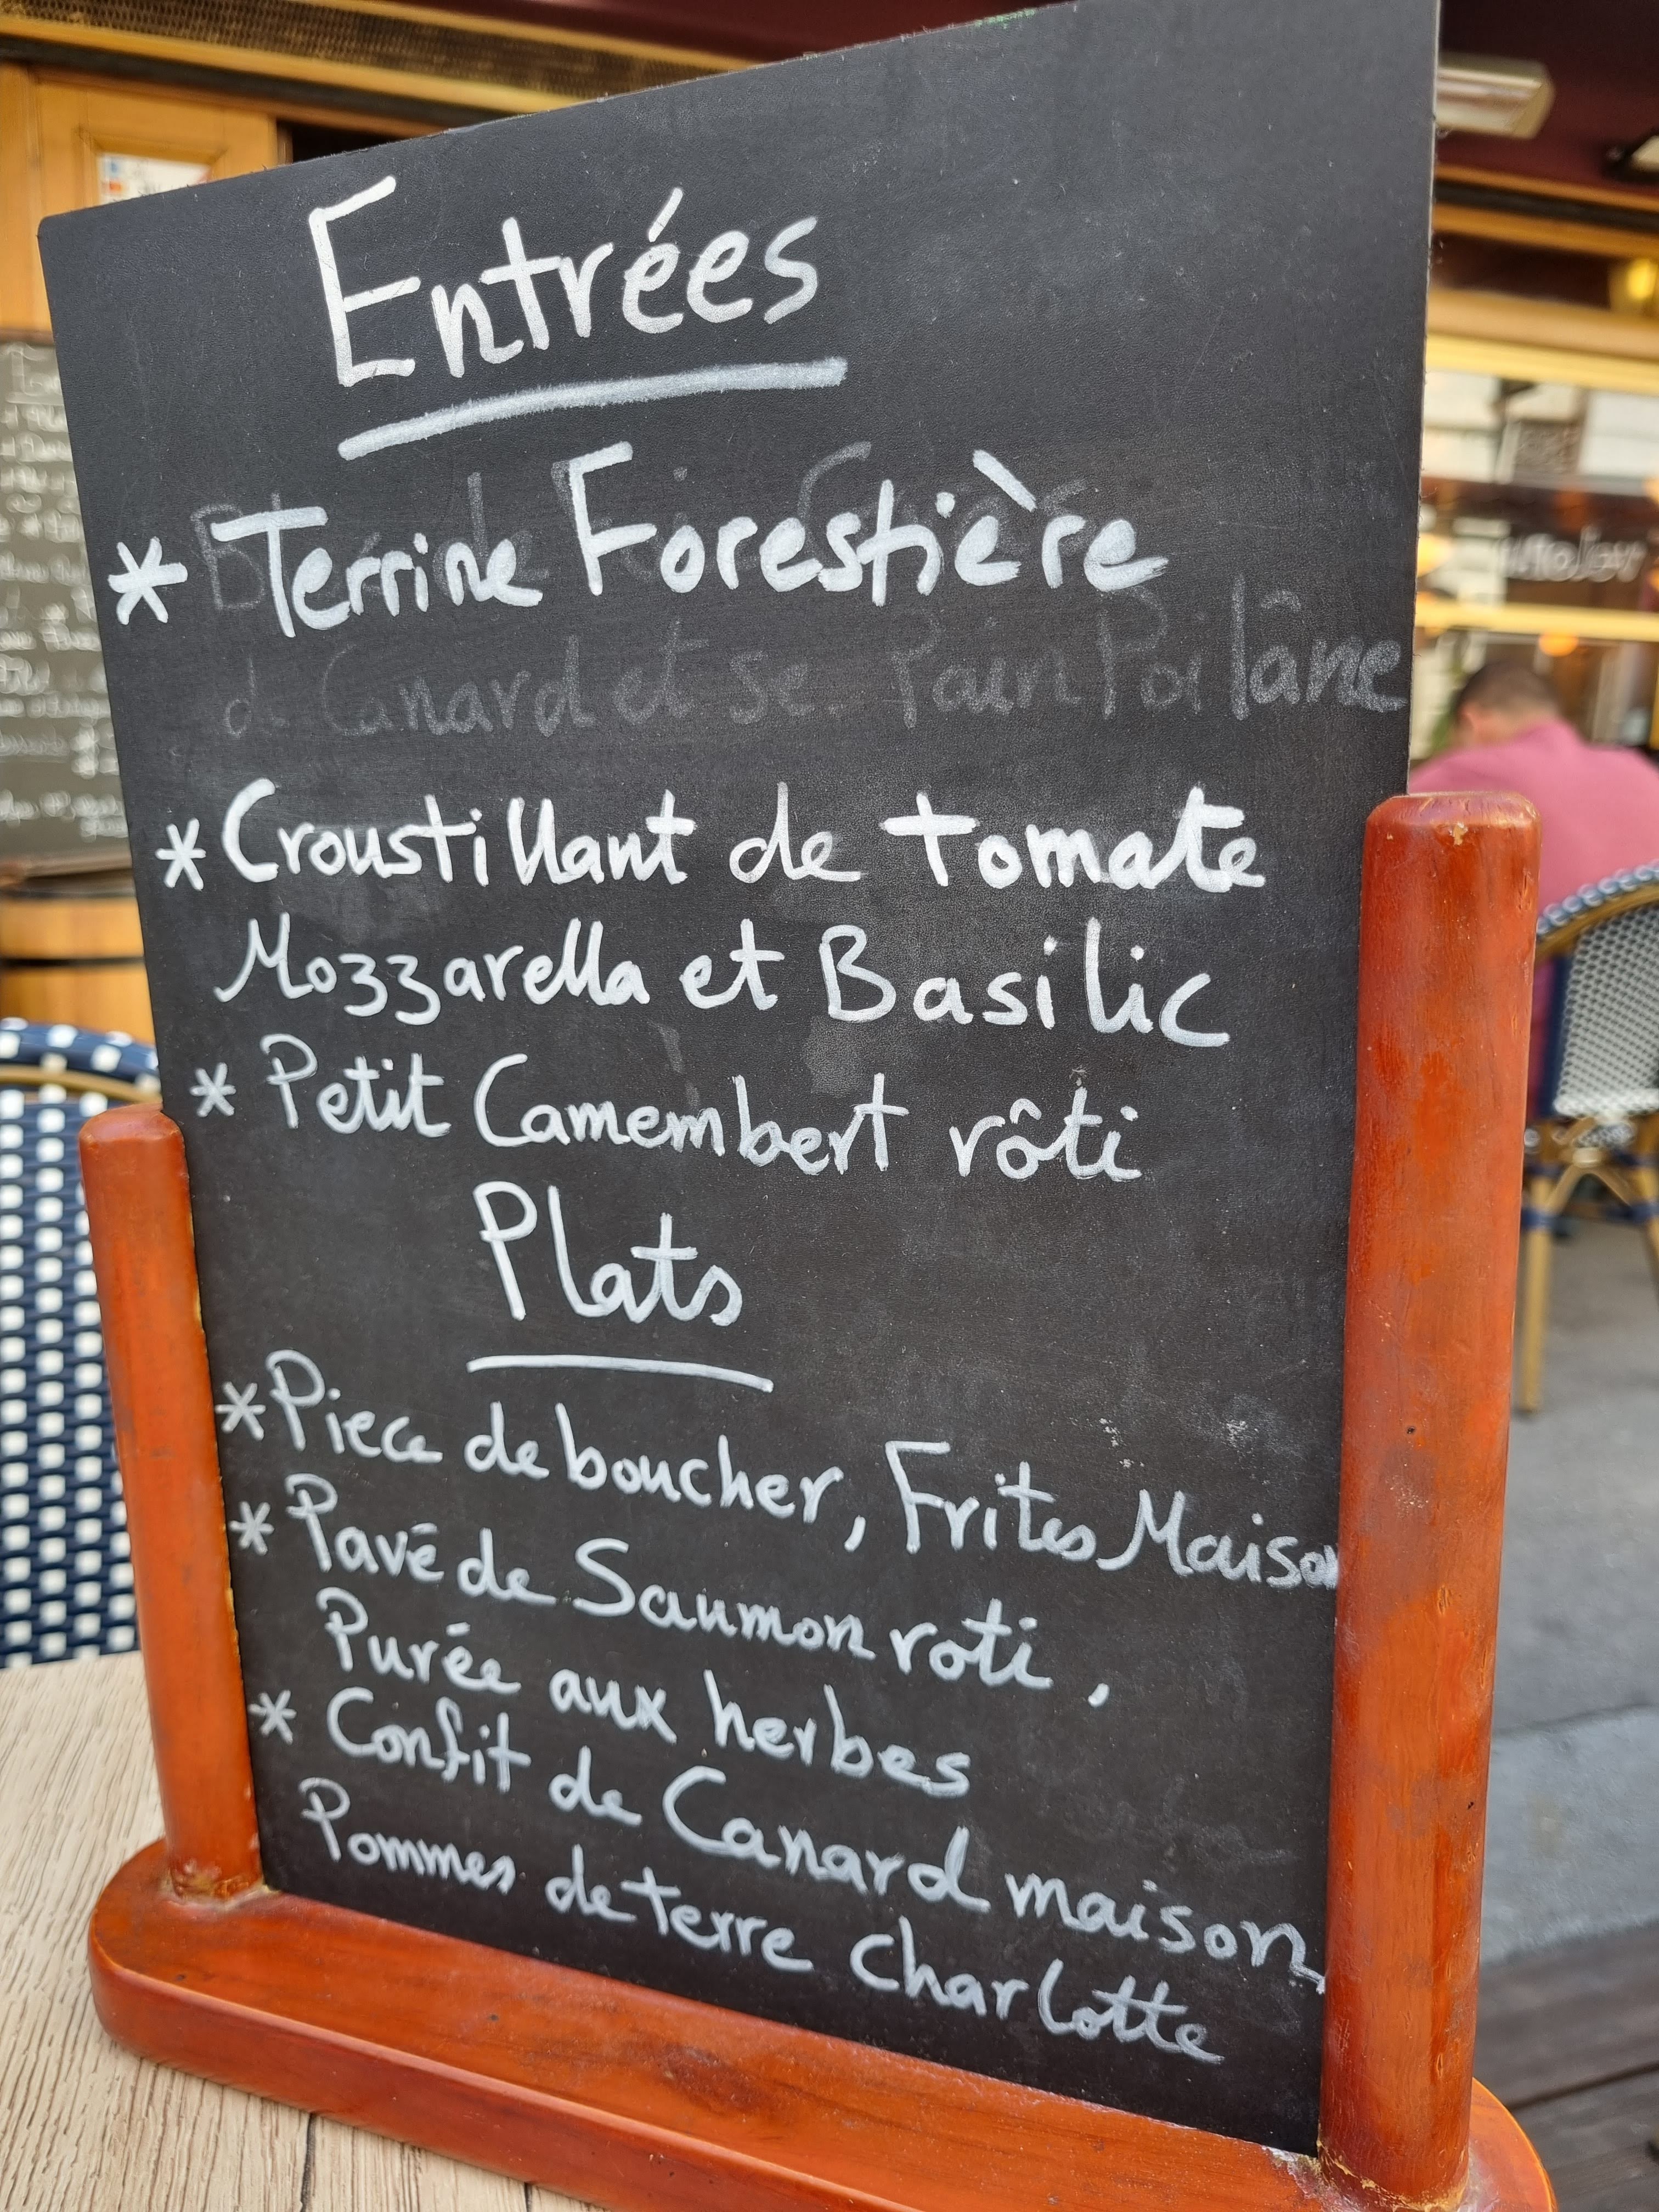 Entrées
* Terrine Forestière
de Canard et se Pain Poilâne
* Croustillant de tomate
Mozzarella et Basilic
* Petit Camembert rôti
Plats
* Piece de boucher, Frites Maison
* Pavé de Saumon roti,
Purée aux herbes
* Confit de Canard maison,
Pommes de terre charlotte